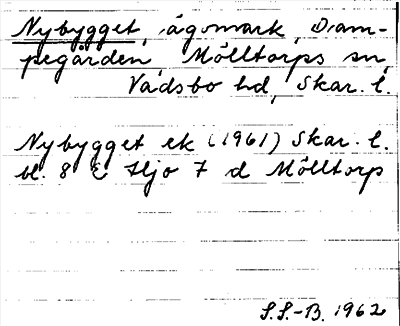 Nybygget, ägomark, Diam-
pegården, Mölltorps sn,
Vadsbo hd, Skar. l.
Nybygget ek (1961) Skar. l.
bl. 8 E Hjo 7 d Mölltorp
S.S.-B. 1962